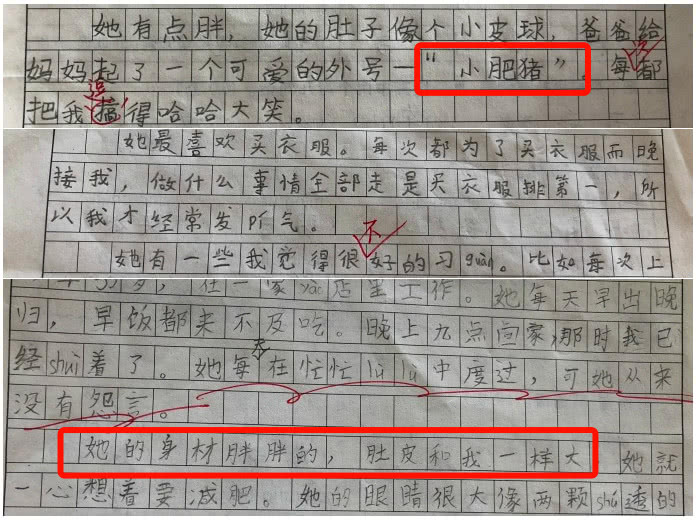 她有点胖，她的肚子像个小皮球，爸爸给
妈妈起了一个可爱的外号—“小肥猪”。每次都
逗
把我搞得哈哈大笑。
她最喜欢买衣服。每次都为了买衣服而晚
接我，做什么事情全部走是买衣服排第一，所
以我才经常发pí气。
不
她有一些我觉得很好的习guàn。比如每次上
在一家
店里工作。她每天早出晚
归，早饭都来不及吃。晚上九点回家，那时我已
经shuì着了。她每天在忙忙lù lù中度过，可她从来
没有怨言。
她的身材胖胖的，肚皮和我一样大 她就
一心想着要减肥。她的眼睛很大像两颗shú透的